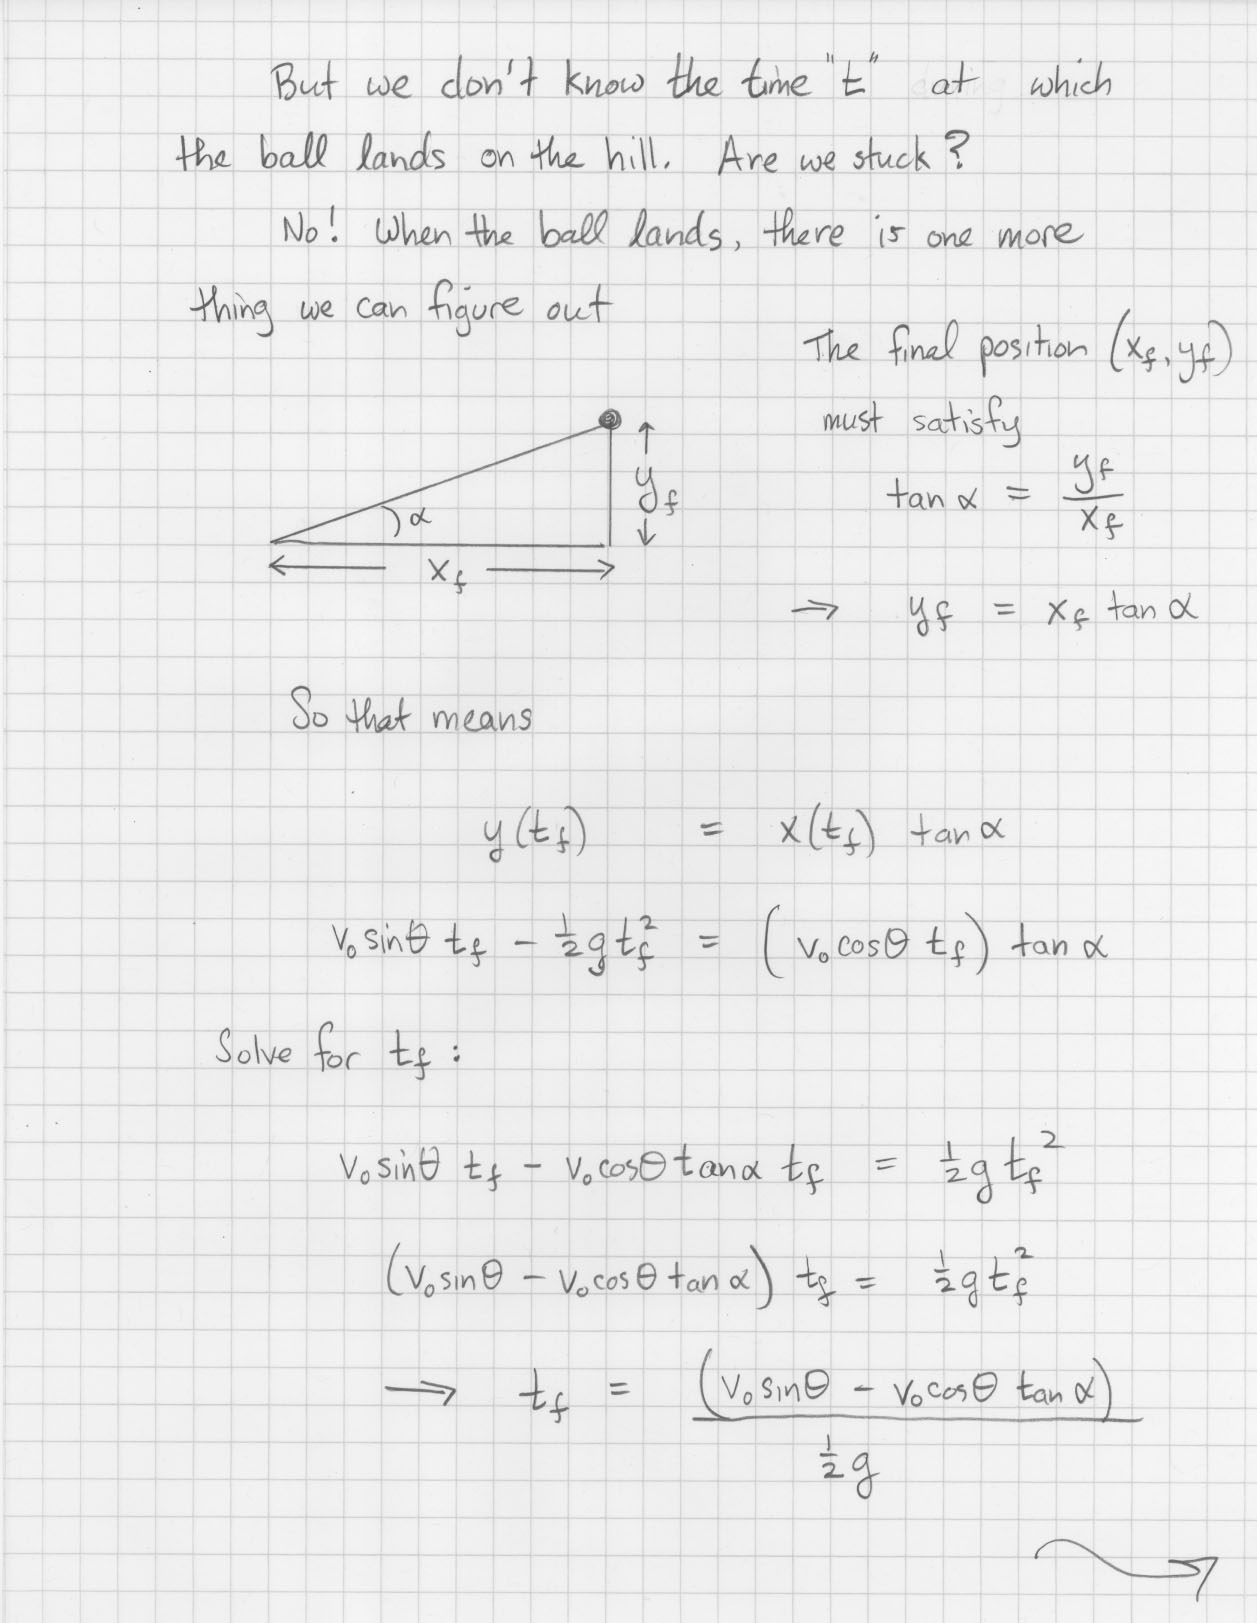 But we don't know the time "t" at which
the ball lands on the hill. Are we stuck?
No! When the ball lands, there is one more
thing we can figure out
The final position (x_f, y_f)
must satisfy
tan α = y_f / x_f
⇒ y_f = x_f tan α
α
y_f
x_f
So that means
y(t_f) = x(t_f) tan α
v₀ sinθ t_f - ½ g t_f² = (v₀ cosθ t_f) tan α
Solve for t_f :
v₀ sinθ t_f - v₀ cosθ tan α t_f = ½ g t_f²
(v₀ sinθ - v₀ cosθ tan α) t_f = ½ g t_f²
⇒ t_f = (v₀ sinθ - v₀ cosθ tan α) / ½ g